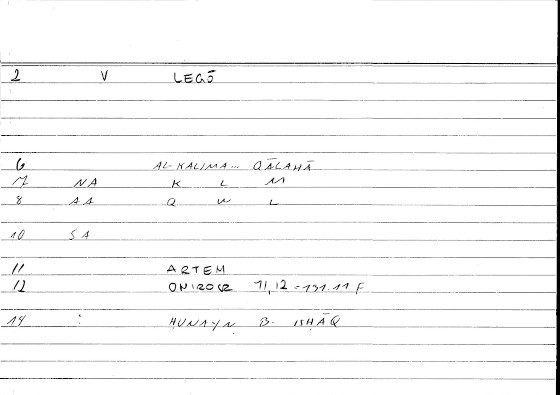 2 V LEGŌ
6 AL-KALIMA... QĀLAHĀ
7 NA K L M
8 AA Q W L
10 SA
11 ARTEM
12 ONIROCR 71,12 = 131.11 F
14 : HUNAYN B. ISHĀQ